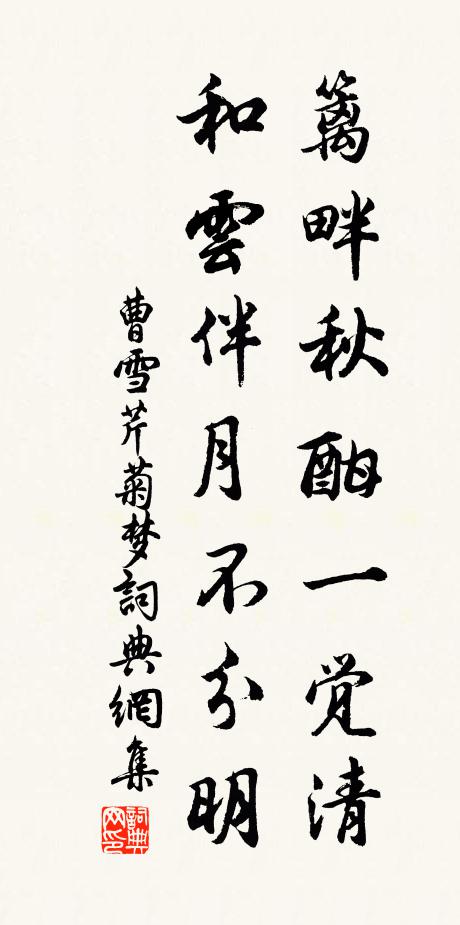 籬畔秋酣一觉清
和雲伴月不分明
曹雪芹菊梦詞典網集
詞典
网印